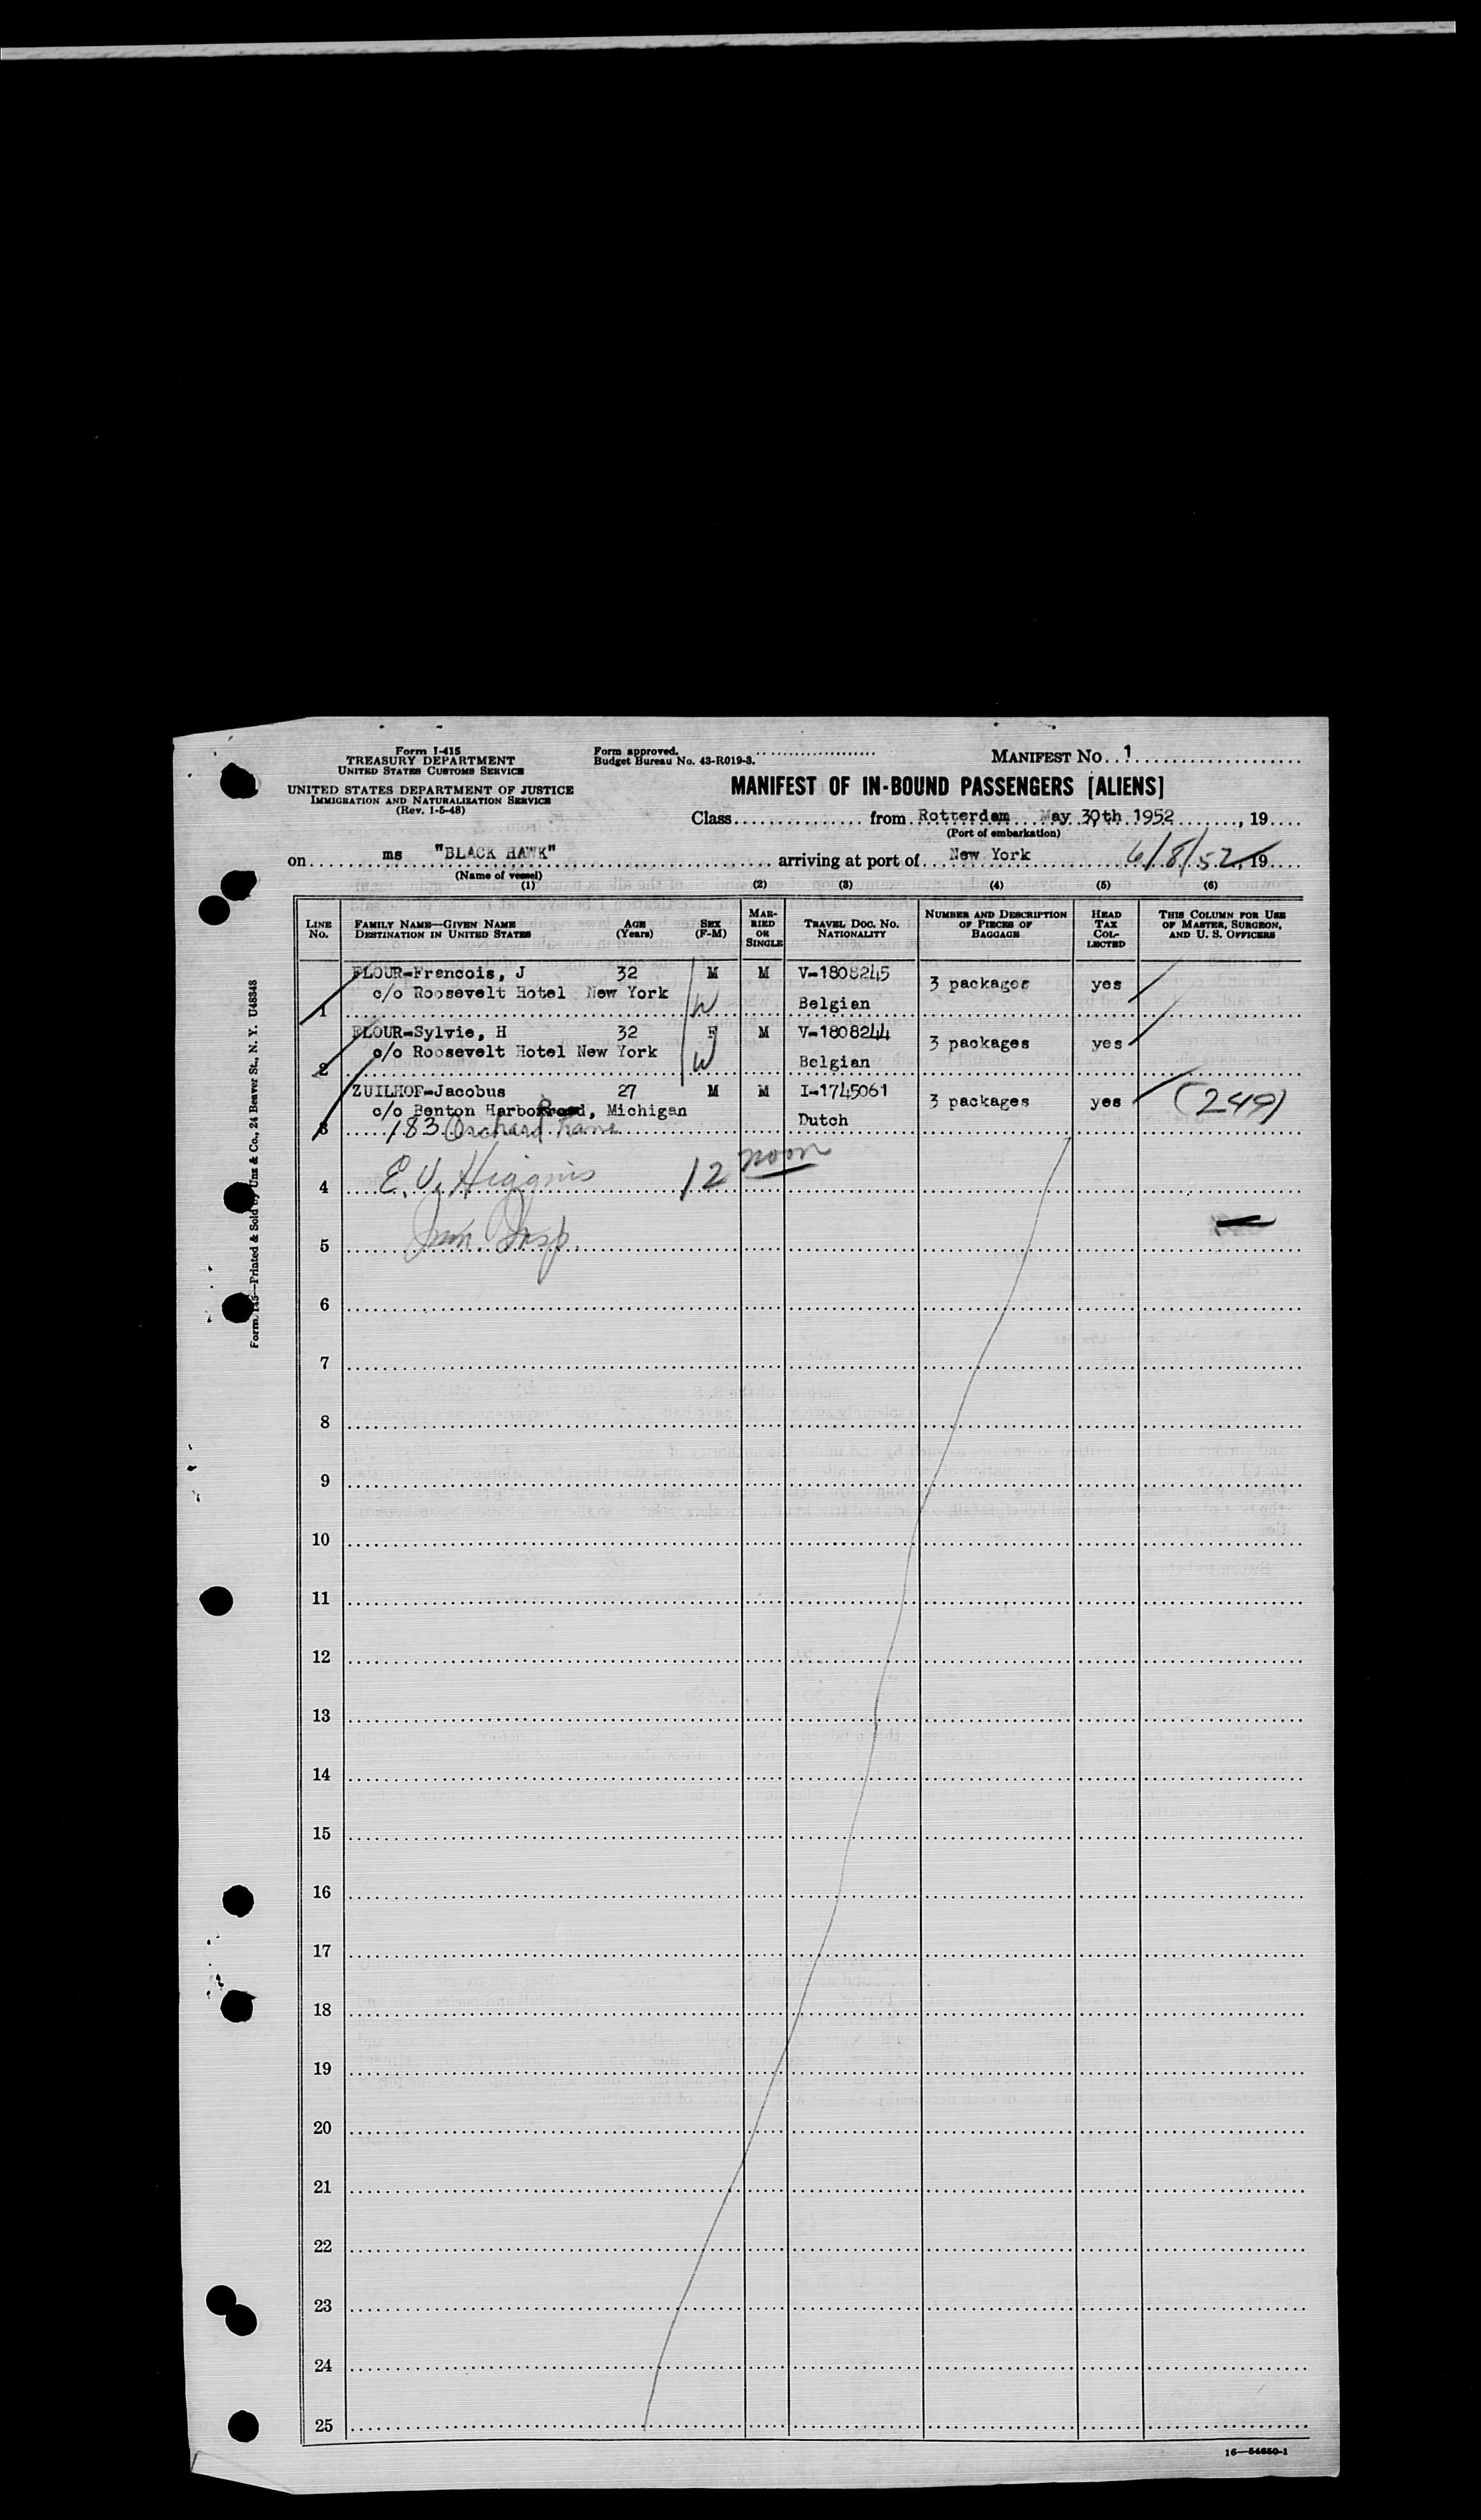 Form I-415
TREASURY DEPARTMENT
UNITED STATES CUSTOMS SERVICE
UNITED STATES DEPARTMENT OF JUSTICE
IMMIGRATION AND NATURALIZATION SERVICE
(Rev. 1-5-48)
Form approved.
Budget Bureau No. 43-R019-3.
MANIFEST No. 1
MANIFEST OF IN-BOUND PASSENGERS [ALIENS]
Class from Rotterdam May 30th 1952, 19
(Port of embarkation)
on ms "BLACK HAWK" arriving at port of New York 6/8/52, 19
(Name of vessel)
(1) (2) (3) (4) (5) (6)
LINE No. FAMILY NAME—GIVEN NAME DESTINATION IN UNITED STATES AGE (Years) SEX (F-M) MARRIED OR SINGLE TRAVEL DOC. NO. NATIONALITY NUMBER AND DESCRIPTION OF PIECES OF BAGGAGE HEAD TAX COLLECTED THIS COLUMN FOR USE OF MASTER, SURGEON, AND U. S. OFFICERS
1 FLOUR-Frencois, J 32 M M V-1808245 3 packages yes
c/o Roosevelt Hotel New York W Belgian
2 FLOUR-Sylvie, H 32 F M V-1808244 3 packages yes
c/o Roosevelt Hotel New York W Belgian
3 ZUILHOF-Jacobus 27 M M I-1745061 3 packages yes (249)
c/o Benton Harbor, Michigan Dutch
183 Orchard Lane
4 E. V. Higgins 12 noon
5 Imm. Insp.
6
7
8
9
10
11
12
13
14
15
16
17
18
19
20
21
22
23
24
25
Form I-415—Printed & Sold by Unz & Co., 24 Beaver St., N. Y. U48348
16—54650-1